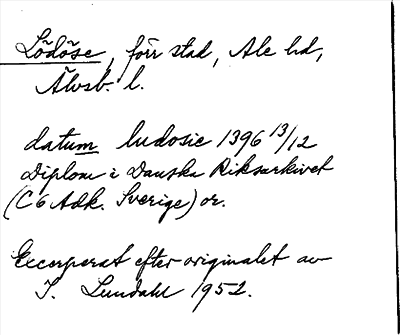 Lödöse, förr stad, Ale hd,
Älvsb. l.
datum ludosie 1396 13/12
Diplom i Danska Riksarkivet
(C6 Adk. Sverige) or.
Excerperat efter originalet av
I. Lundahl 1952.